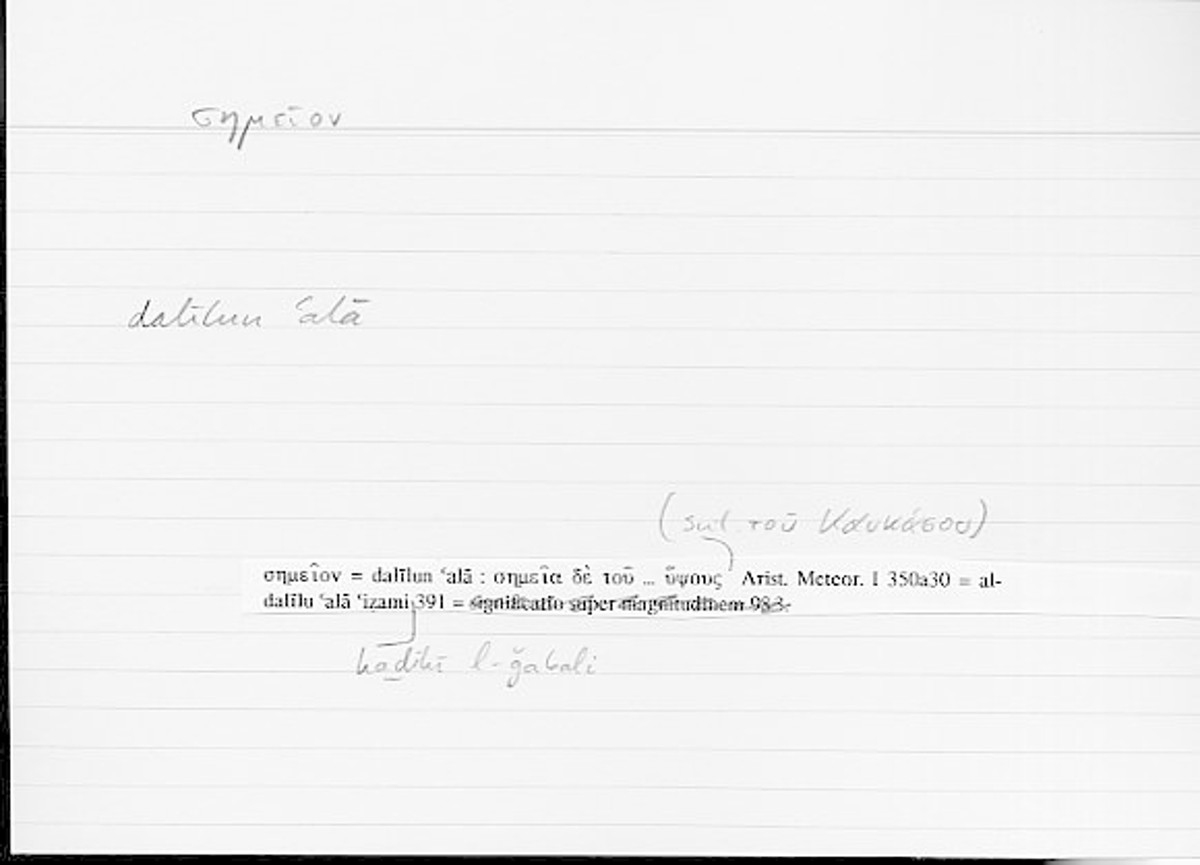 σημεῖον
dalīlun ʿalā
(scil. τοῦ Καυκάσου)
σημεῖον = dalīlun ʿalā : σημεῖα δὲ τοῦ ... ὕψους Arist. Meteor. I 350a30 = al-
dalīlu ʿalā ʿiẓami 391 = significatio super magnitudinem 983.
hāḏihī l-ǧabali